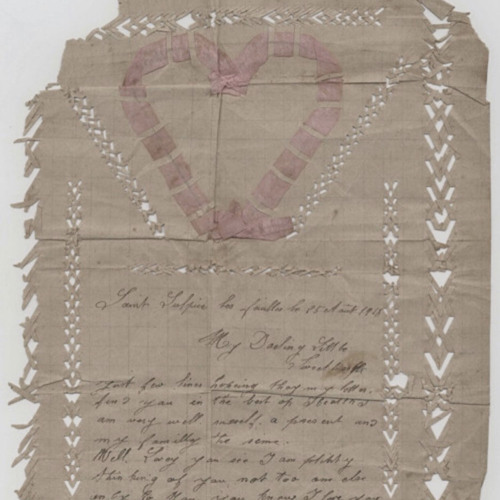 Saint Sulpice les feuilles le 25 Août 1918
My Darling Little
Sweet
just few lines hoping they my letter
find you in the best of Health
am very well myself. a present and
my familly the same.
Well Lucy you see I am
thinking of you not too am
you know I love you